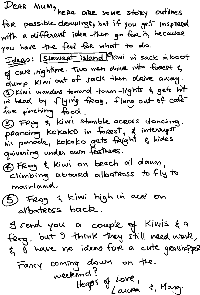 Dear Mum,
here are some story outlines
for possible drawings, but if you get inspired
with a different idea then go for it, because
you have the feel for what to do
Idea: Slawest Island Kiwi in sack in boot
of car nightime. Two men drive into forest &
dump Kiwi out of sack then drive away.
② Kiwi wanders toward town-lights & gets hit
in head by flying frog, flung out of café
for pinching food.
③ Frog & Kiwi stumble across dancing,
prancing kokako in forest, & interrupt
his parade, kokako gets fright & hides
quivering under own feathers.
④ Frog & Kiwi on beach at dawn,
climbing aboard albatross to fly to
mainland.
⑤ Frog & Kiwi high in air on
albatross back.
I send you a couple of Kiwis & a
frog, but I think they still need work,
& I have no ideas for a cute grasshopper
Fancy coming down on the
weekend?
Heaps of love,
Laura &